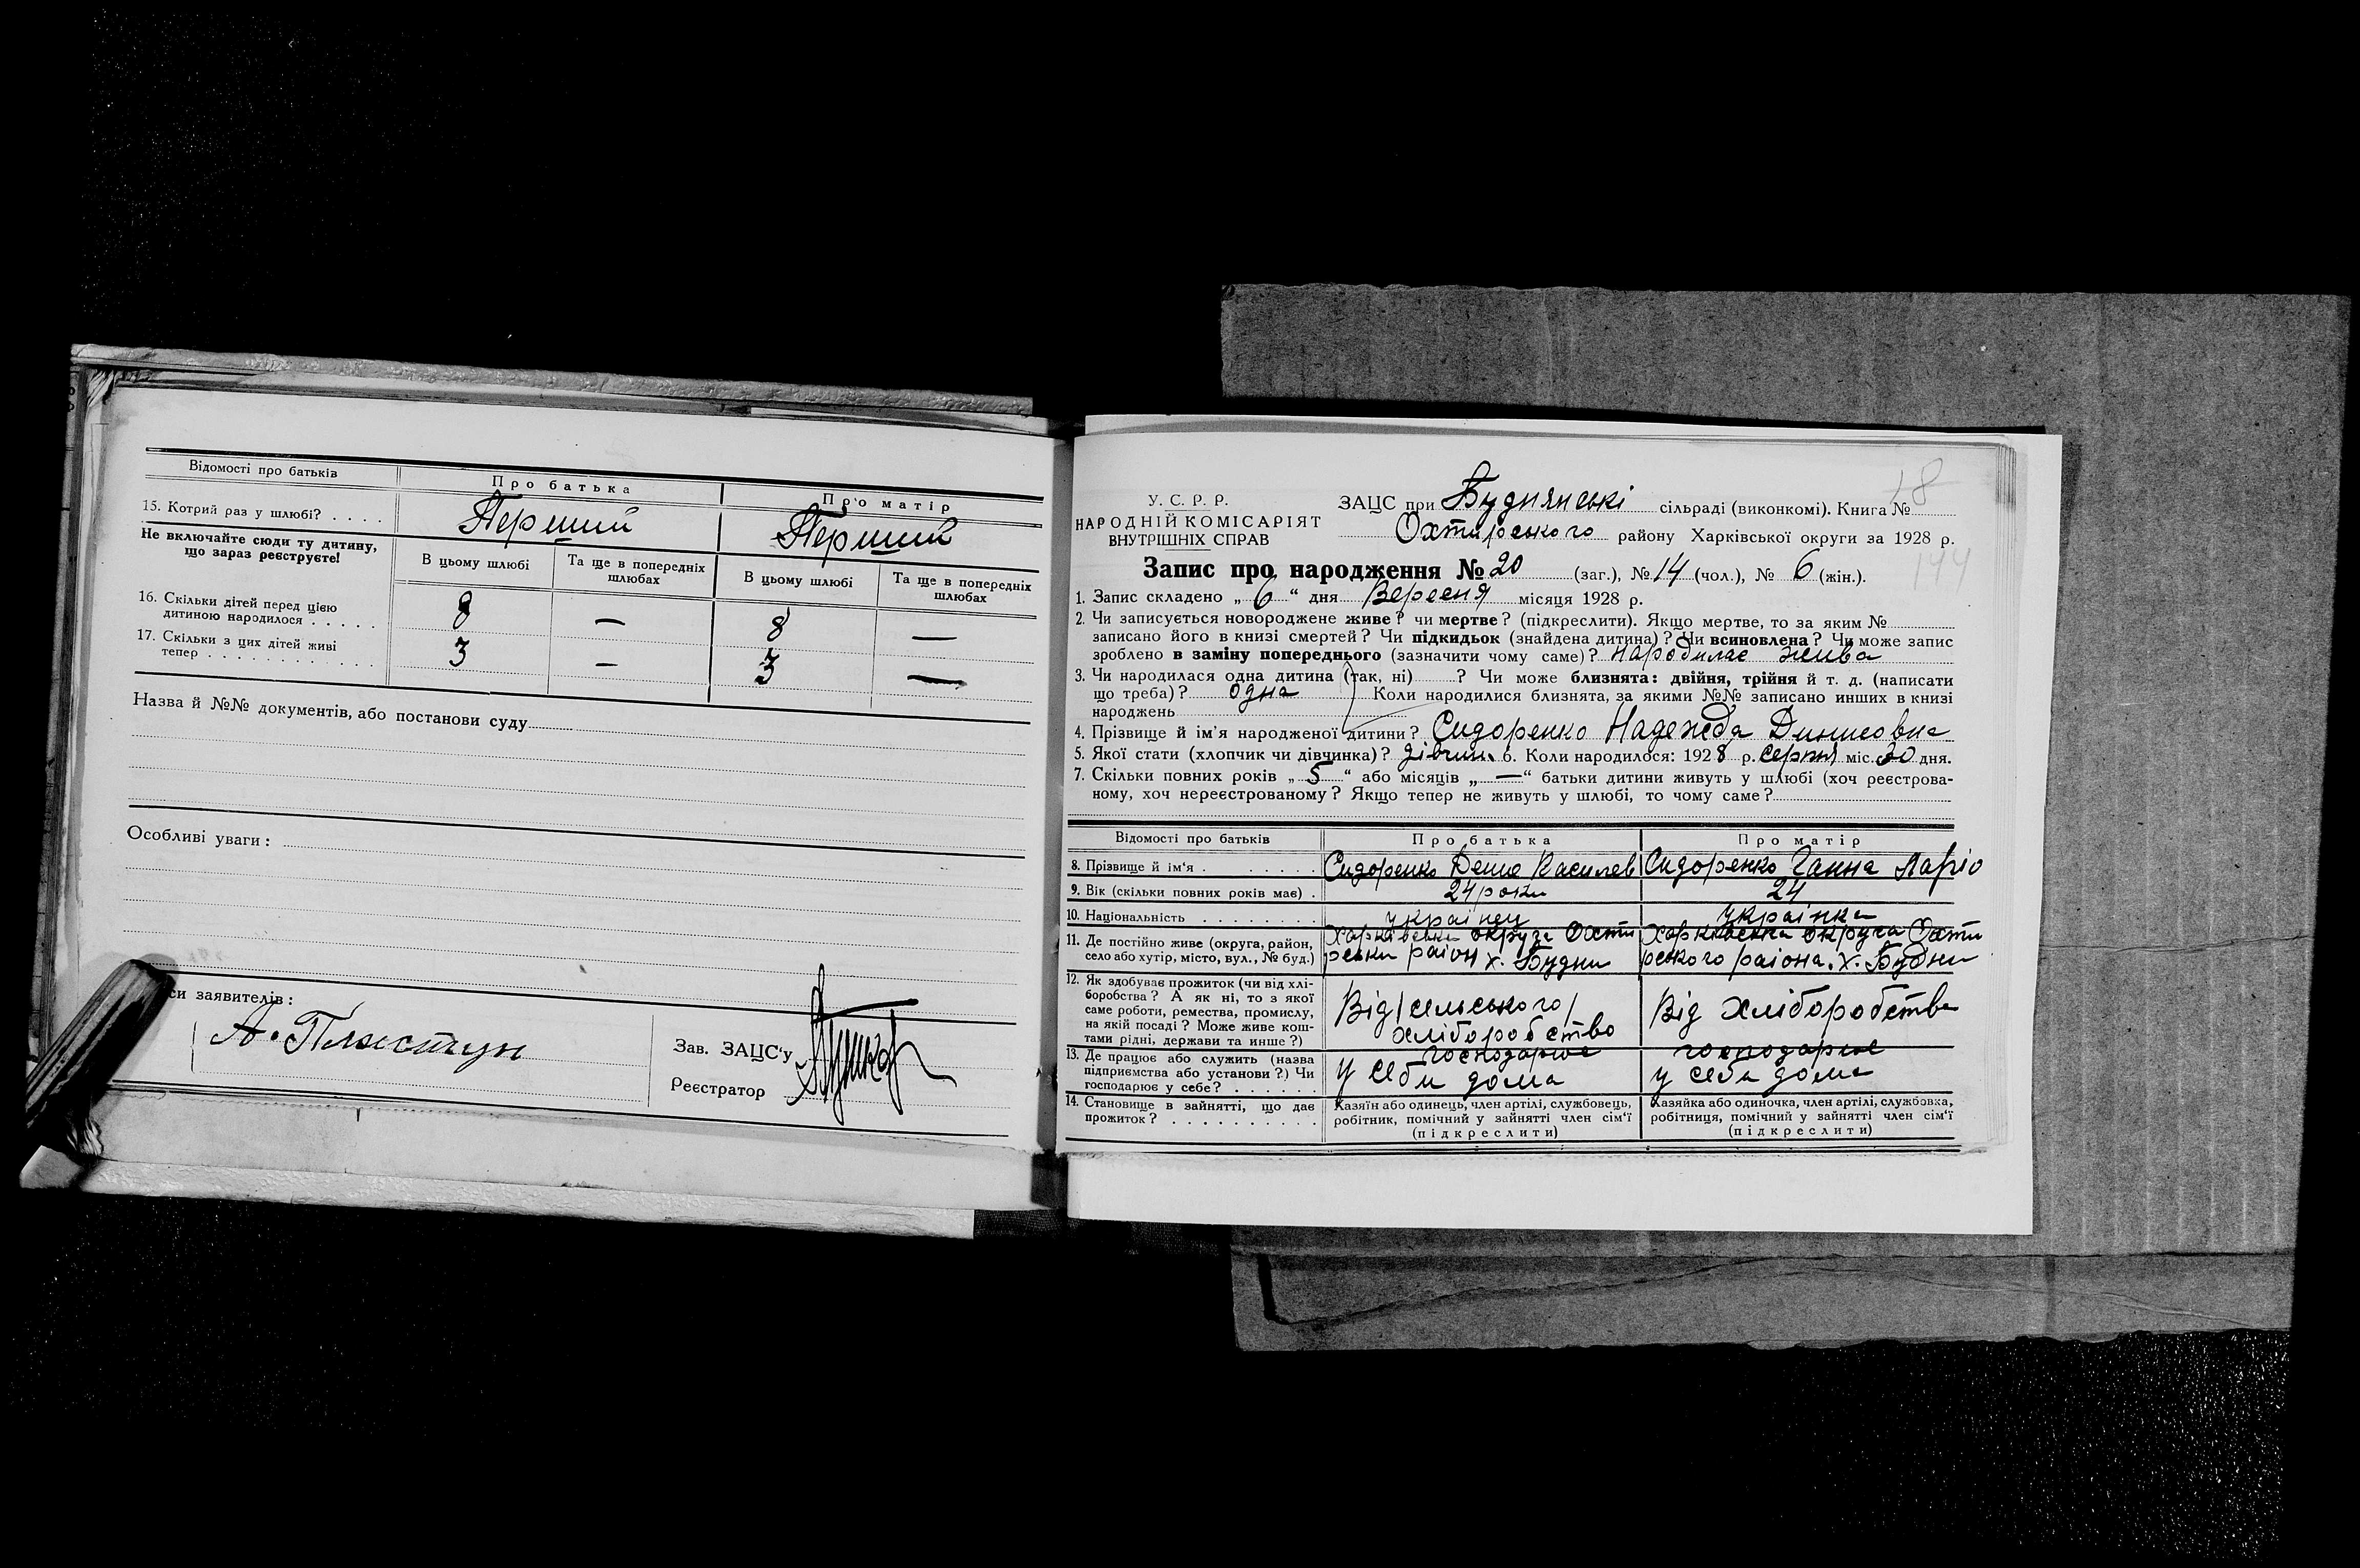 Відомості про батьків
Про батька
Про матір
15. Котрий раз у шлюбі? . . . .
Перший
Перший
Не включайте сюди ту дитину,
що зараз реєструєте!
В цьому шлюбі
Та ще в попередніх
шлюбах
В цьому шлюбі
Та ще в попередніх
шлюбах
16. Скільки дітей перед цією
дитиною народилося . . . . .
8
—
8
—
17. Скільки з цих дітей живі
тепер . . . . . . . . . . . .
3
—
3
—
Назва й №№ документів, або постанови суду
Особливі уваги:
си заявителів:
А. Плистун
Зав. ЗАЦС'у
Реєстратор
18
144
У. С. Р. Р.
НАРОДНІЙ КОМІСАРІЯТ
ВНУТРІШНІХ СПРАВ
ЗАЦС при Буднянські сільраді (виконкомі). Книга №
Охтирського району Харківської округи за 1928 р.
Запис про народження № 20 (заг.), № 14 (чол.), № 6 (жін.).
1. Запис складено „ 6 “ дня Вересня місяця 1928 р.
2. Чи записується новороджене живе? чи мертве? (підкреслити). Якщо мертве, то за яким №
записано його в книзі смертей? Чи підкидьок (знайдена дитина)? Чи всиновлена? Чи може запис
зроблено в заміну попереднього (зазначити чому саме)? народилас жива
3. Чи народилася одна дитина (так, ні) ? Чи може близнята: двійня, трійня й т. д. (написати
що треба)? одна Коли народилися близнята, за якими №№ записано инших в книзі
народжень
4. Прізвище й ім'я народженої дитини? Сидоренко Надежда Динисовна
5. Якої стати (хлопчик чи дівчинка)? дівчин. 6. Коли народилося: 1928 р. серпня міс. 30 дня.
7. Скільки повних років „ 5 “ або місяців „ — “ батьки дитини живуть у шлюбі (хоч реєстрова-
ному, хоч нереєстрованому? Якщо тепер не живуть у шлюбі, то чому саме?
Відомості про батьків
Про батька
Про матір
8. Прізвище й ім'я . . . . . . .
Сидоренко Денис Василев
Сидоренко Ганна Ларіо
9. Вік (скільки повних років має) .
24 роки
24
10. Національність . . . . . . . .
українец
українка
11. Де постійно живе (округа, район,
село або хутір, місто, вул., № буд.)
Харківська округа Охти
рськи раіон х. Будни
Харківська округа Охти
рського раіона. х. Будни
12. Як здобуває прожиток (чи від хлі-
боробства? А як ні, то з якої
саме роботи, ремества, промислу,
на якій посаді? Може живе кош-
тами рідні, держави та инше?)
Від/сельського/
хліборобство
Від хліборобства
13. Де працює або служить (назва
підприємства або установи?) Чи
господарює у себе? . . . . . .
господарює
у себи дома
господарює
у себя дома
14. Становище в зайнятті, що дає
прожиток? . . . . . . . . . .
Хазяїн або одинець, член артілі, службовець,
робітник, помічний у зайнятті член сім'ї
(підкреслити)
Хазяйка або одиночка, член артілі, службовка,
робітниця, помічний у зайнятті член сім'ї
(підкреслити)